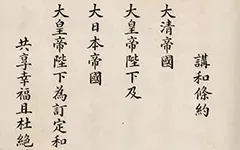 講和條約
大清帝國
大皇帝陛下及
大日本帝國
大皇帝陛下為訂定和
共享幸福且杜絕